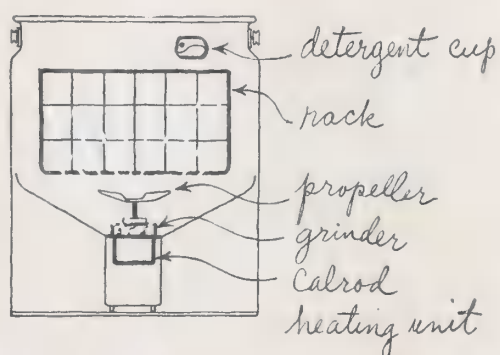 detergent cup
rack
propeller
grinder
Calrod
heating unit